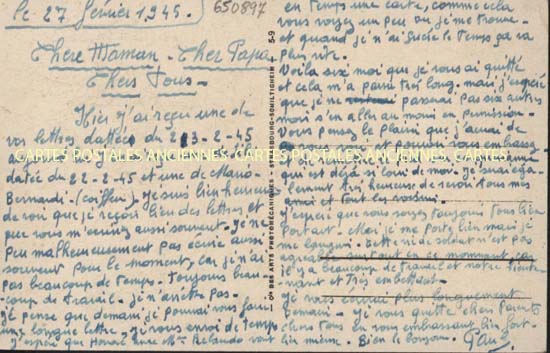 le 27 février 1945. 650897
Chère Maman - Cher Papa
Chers Tous -
Hier j'ai reçu une de
vos lettres datées du 213-2-45
CARTES POSTALES ANCIENNES
datée du 22-2-45 et une de
Bernardi - (coiffeur). Je suis bien heureux
de voir que je reçois bien des lettres et
que vous m'écrivez aussi souvent. Je ne
peu malheureusement pas écrire aussi
souvent pour le moment, car j'ai
pas beaucoup de temps. Toujours beau-
coup de travail - je n'arrête pas.
Je pense que demain je pourrai vous faire
une longue lettre. Je vous envoi de temps
j'espère que
Cie DES ARTS PHOTOMÉCANIQUES - STRASBOURG-SCHILTIGHEIM 5-9
en temps une carte, comme cela
vous voyez un peu où je me trouve -
et quand je n'ai le temps ça va
plus vite.
Voila six moi que je vous ai quitté
et cela m'a paru très long. mais j'espère
que je ne passerai pas six autres
mois s'en aller au moin en permission -
Vous pensez le plaisir que j'aurai de
CARTES POSTALES ANCIENNES
qui est déjà si loin de moi. Je serai éga-
lement très heureuse de revoir tous mes
amis et tout les voisins.
J'espère que vous soyez toujours tous bien
Portant - Moi je me porte bien mais je
me languni. metier de soldat n'est pas
agreable surtout en ce momment car
j'ai beaucoup de travail et notre lieute-
nant et Très embêtant.
Je vous plus longuement
demain - Je vous quitte chers Parents
chers tous en vous embrassant bien fort
bien mieux. Bien le bonjour. Paul